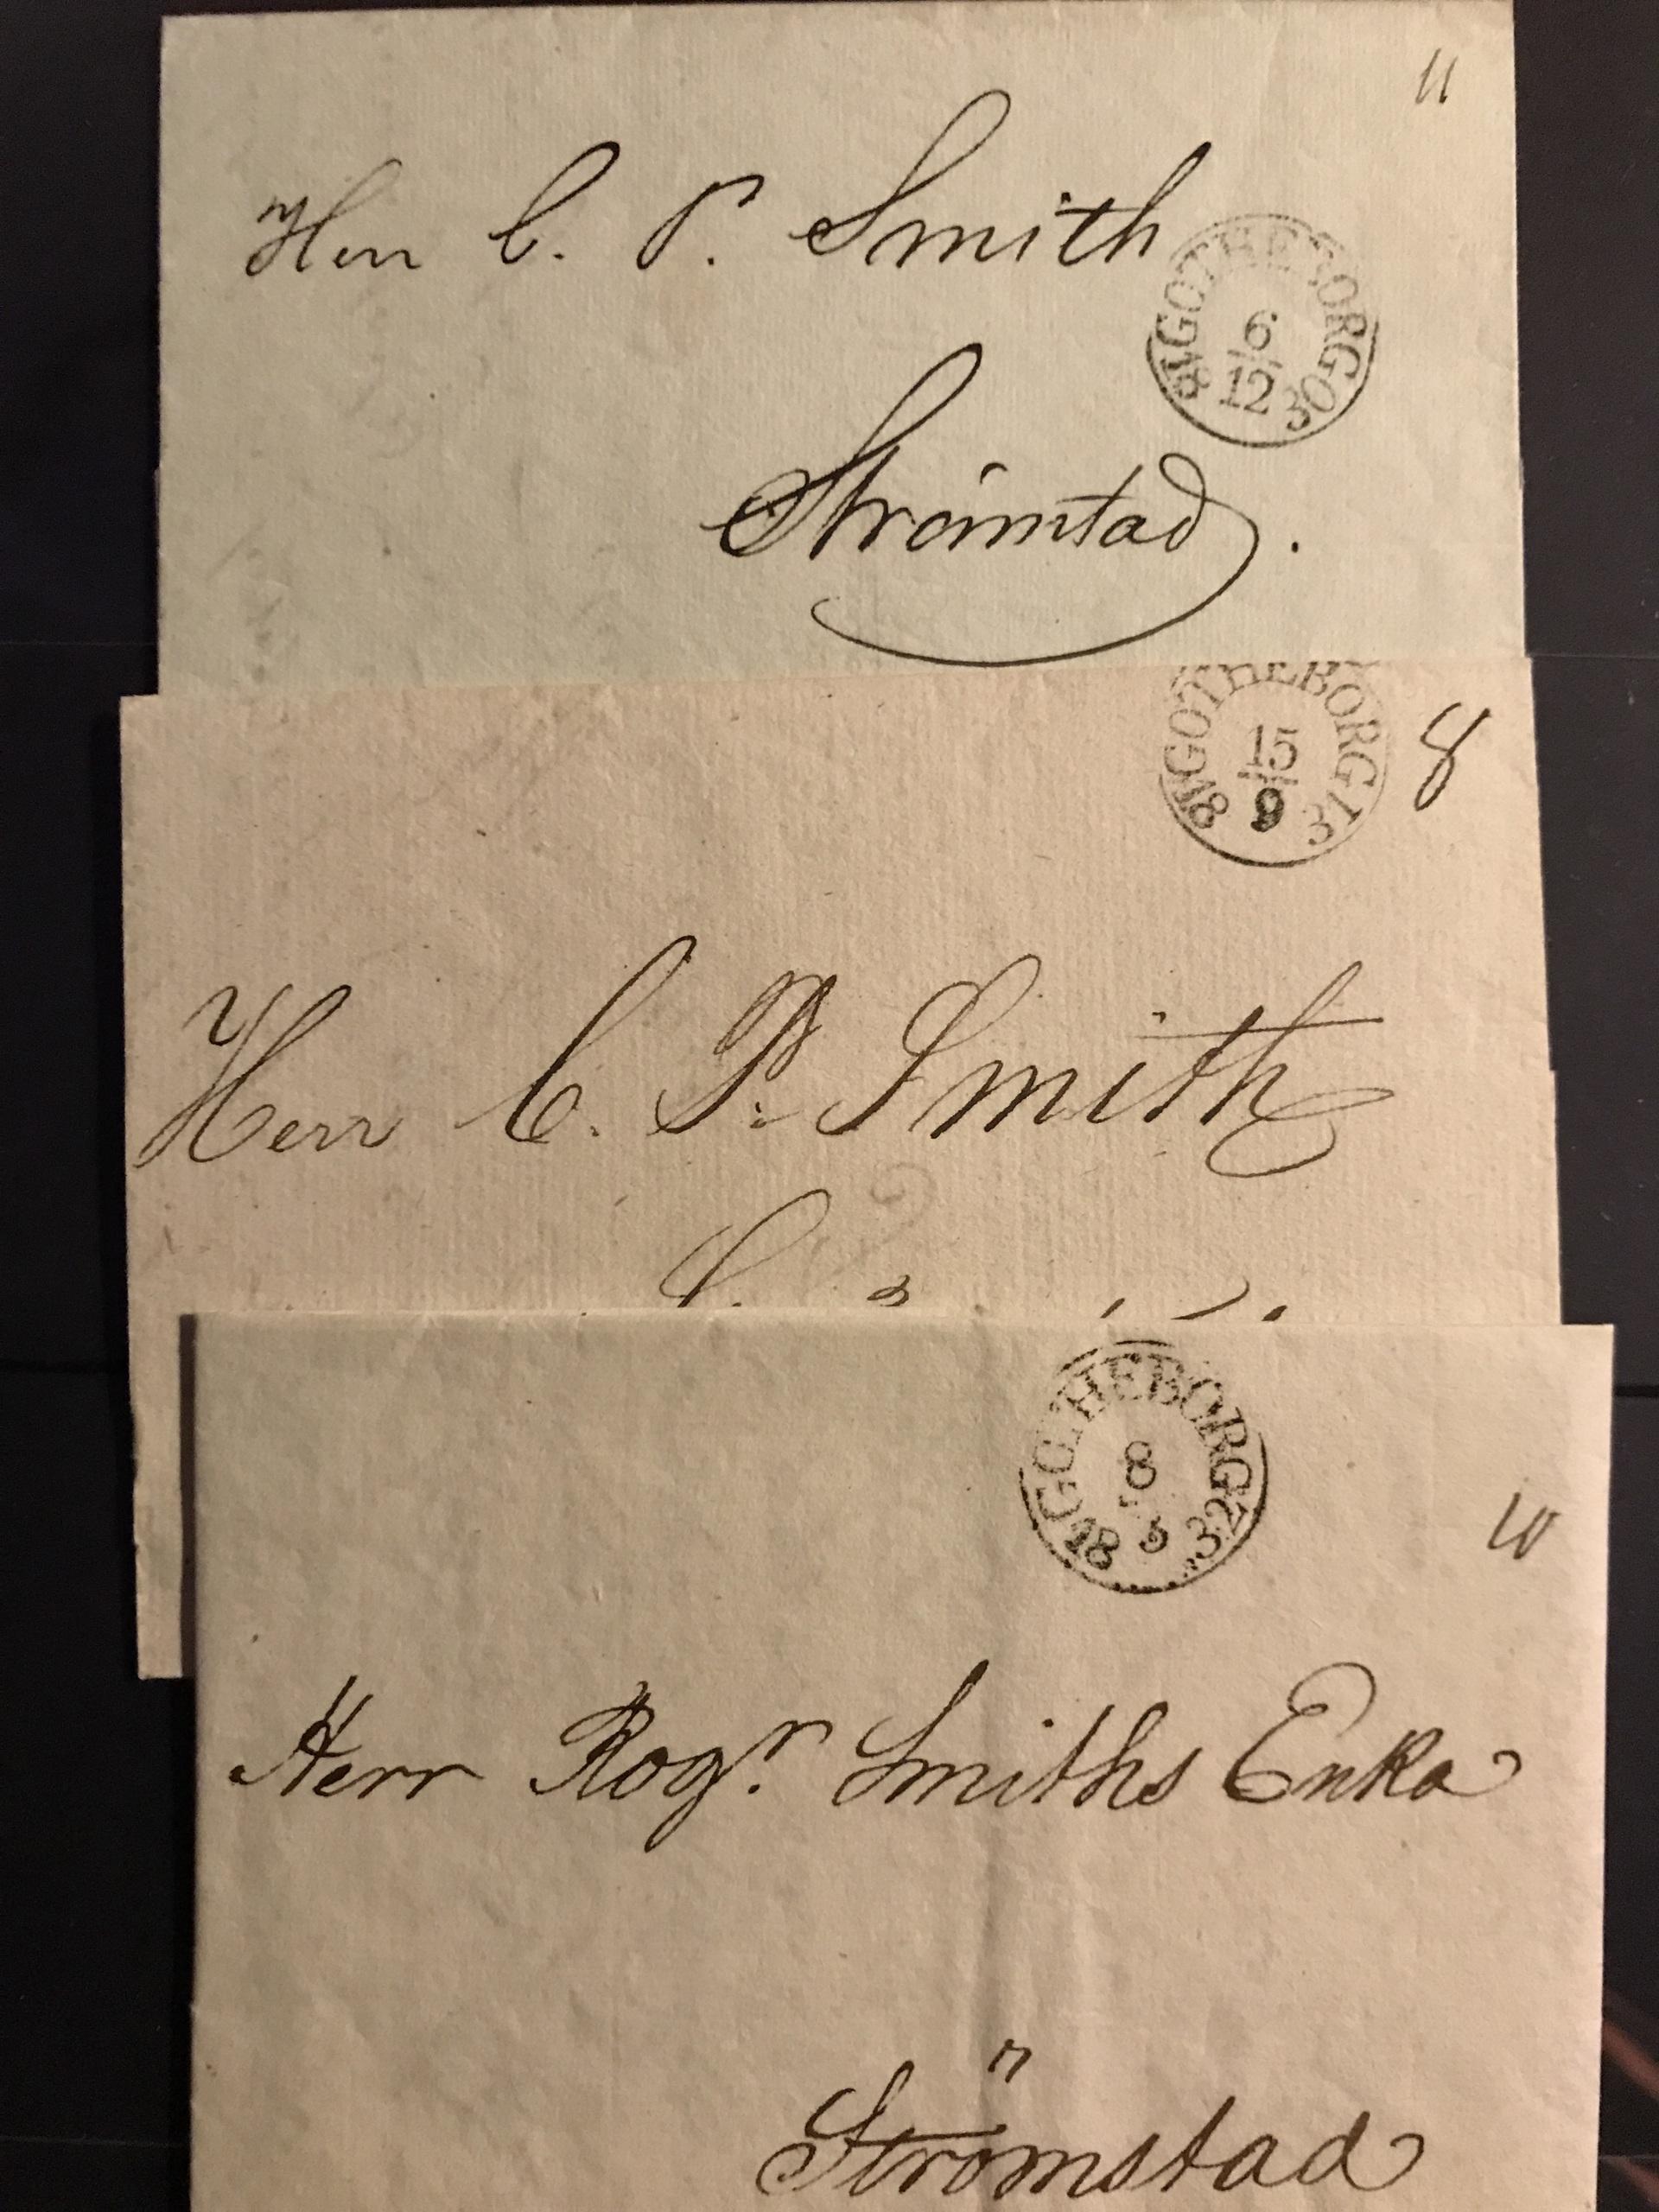 11
Herr C. P. Smith
GOTHEBORG
6
12
18 30
Strömstad.
GOTHEBORG
15
9
18 31
8
Herr C. P. Smith
GOTHEBORG
8
18 32
10
Herr Rogr Smiths Enka
Strömstad